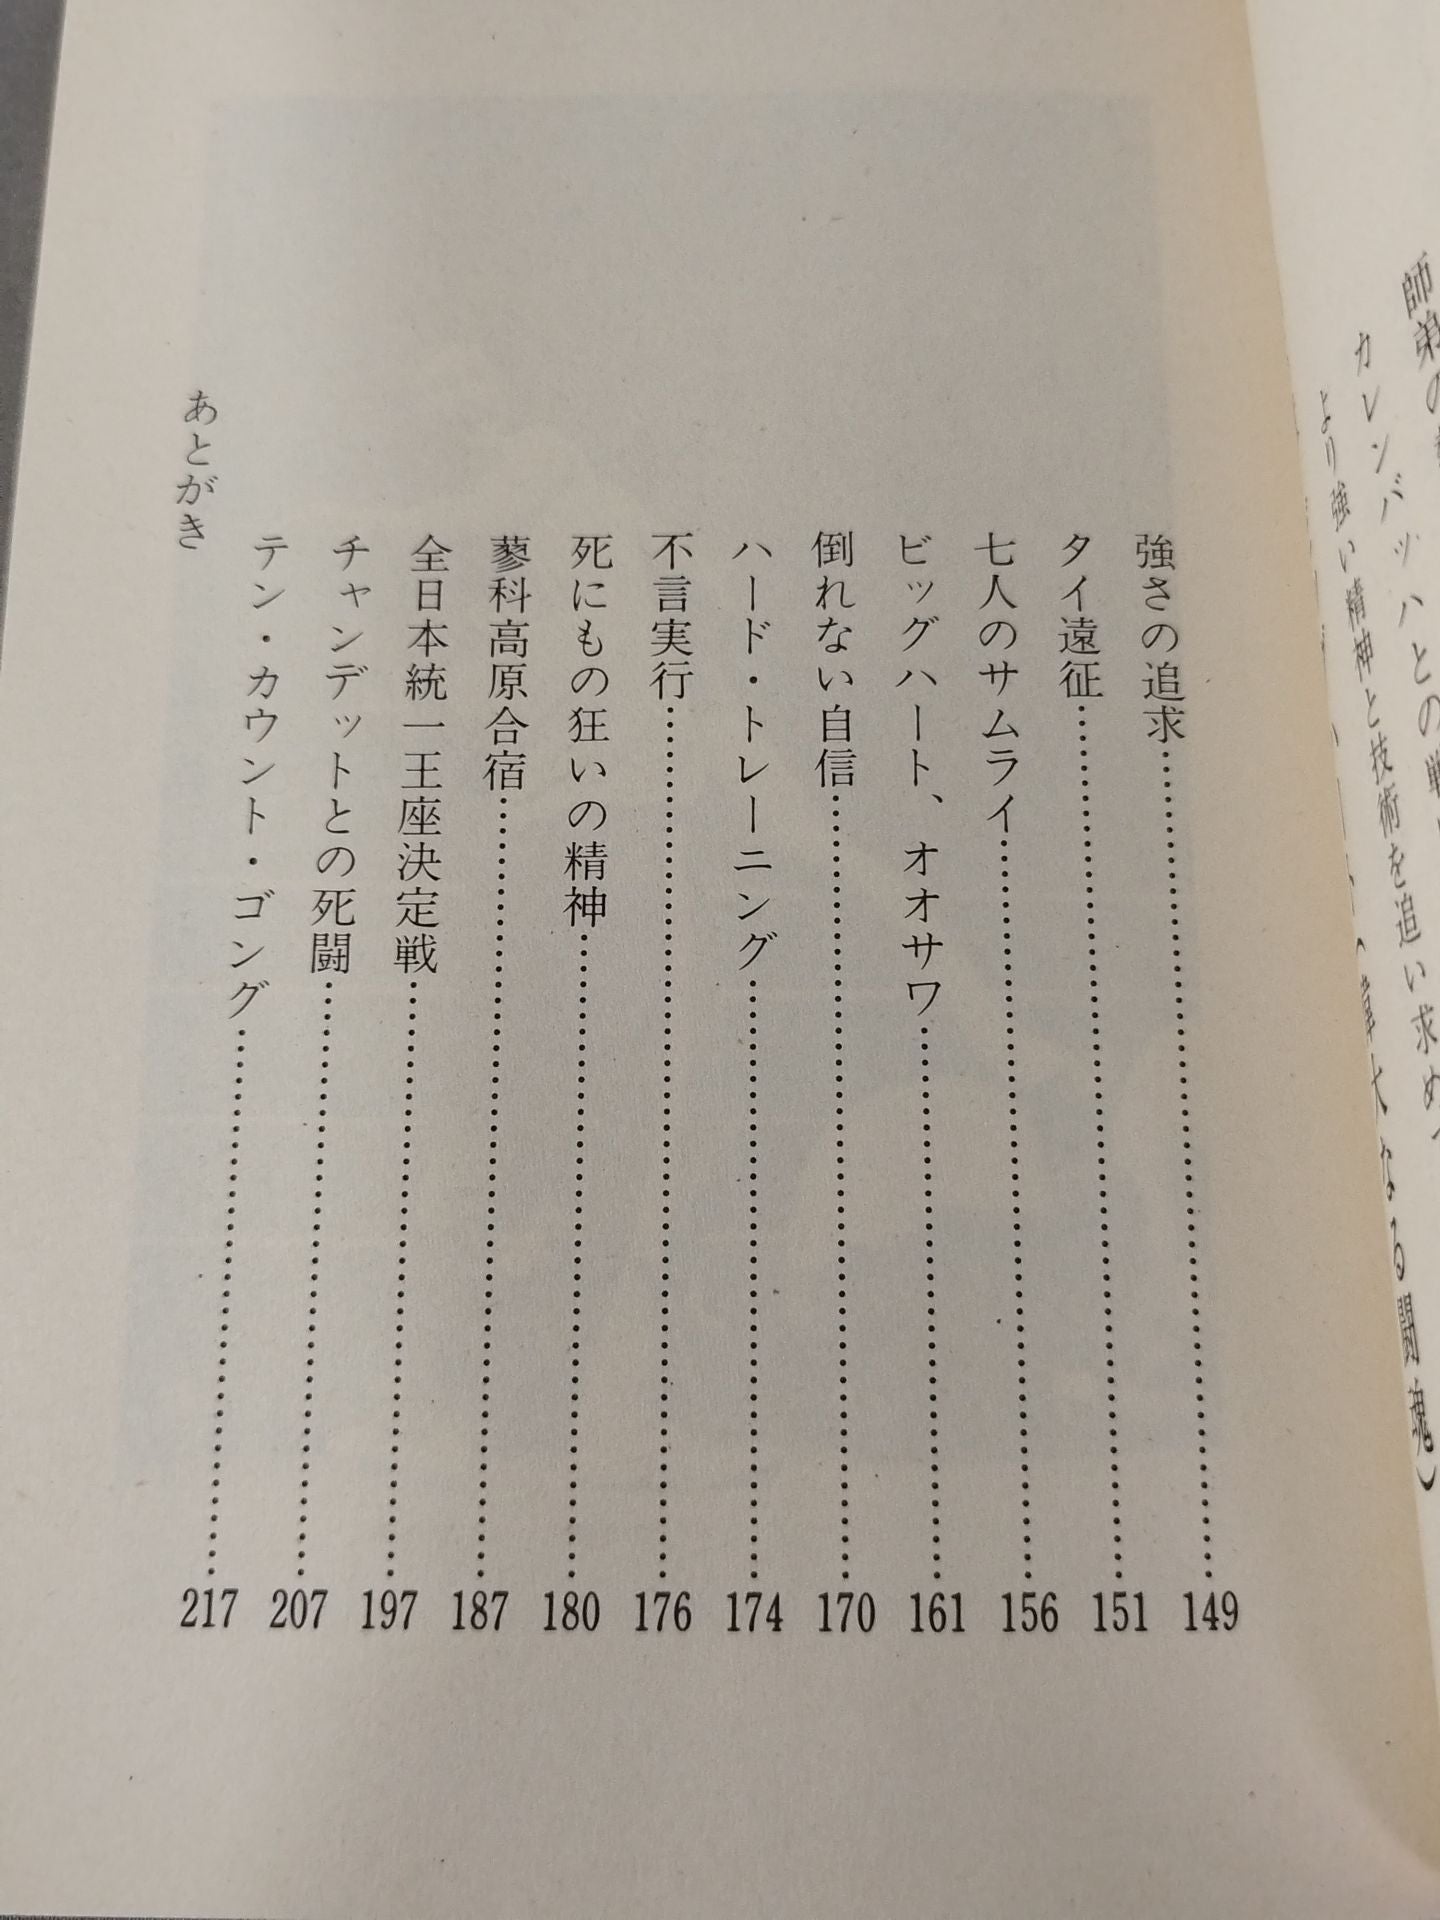 カレンバッハとの
より強い精神と技術を追い求め
なる闘魂）
強さの追求……………149
タイ遠征……………151
七人のサムライ……………156
ビッグハート、オオサワ……………161
倒れない自信……………170
ハード・トレーニング……………174
不言実行……………176
死にもの狂いの精神……………180
蓼科高原合宿……………187
全日本統一王座決定戦……………197
チャンデットとの死闘……………207
テン・カウント・ゴング……………217
あとがき